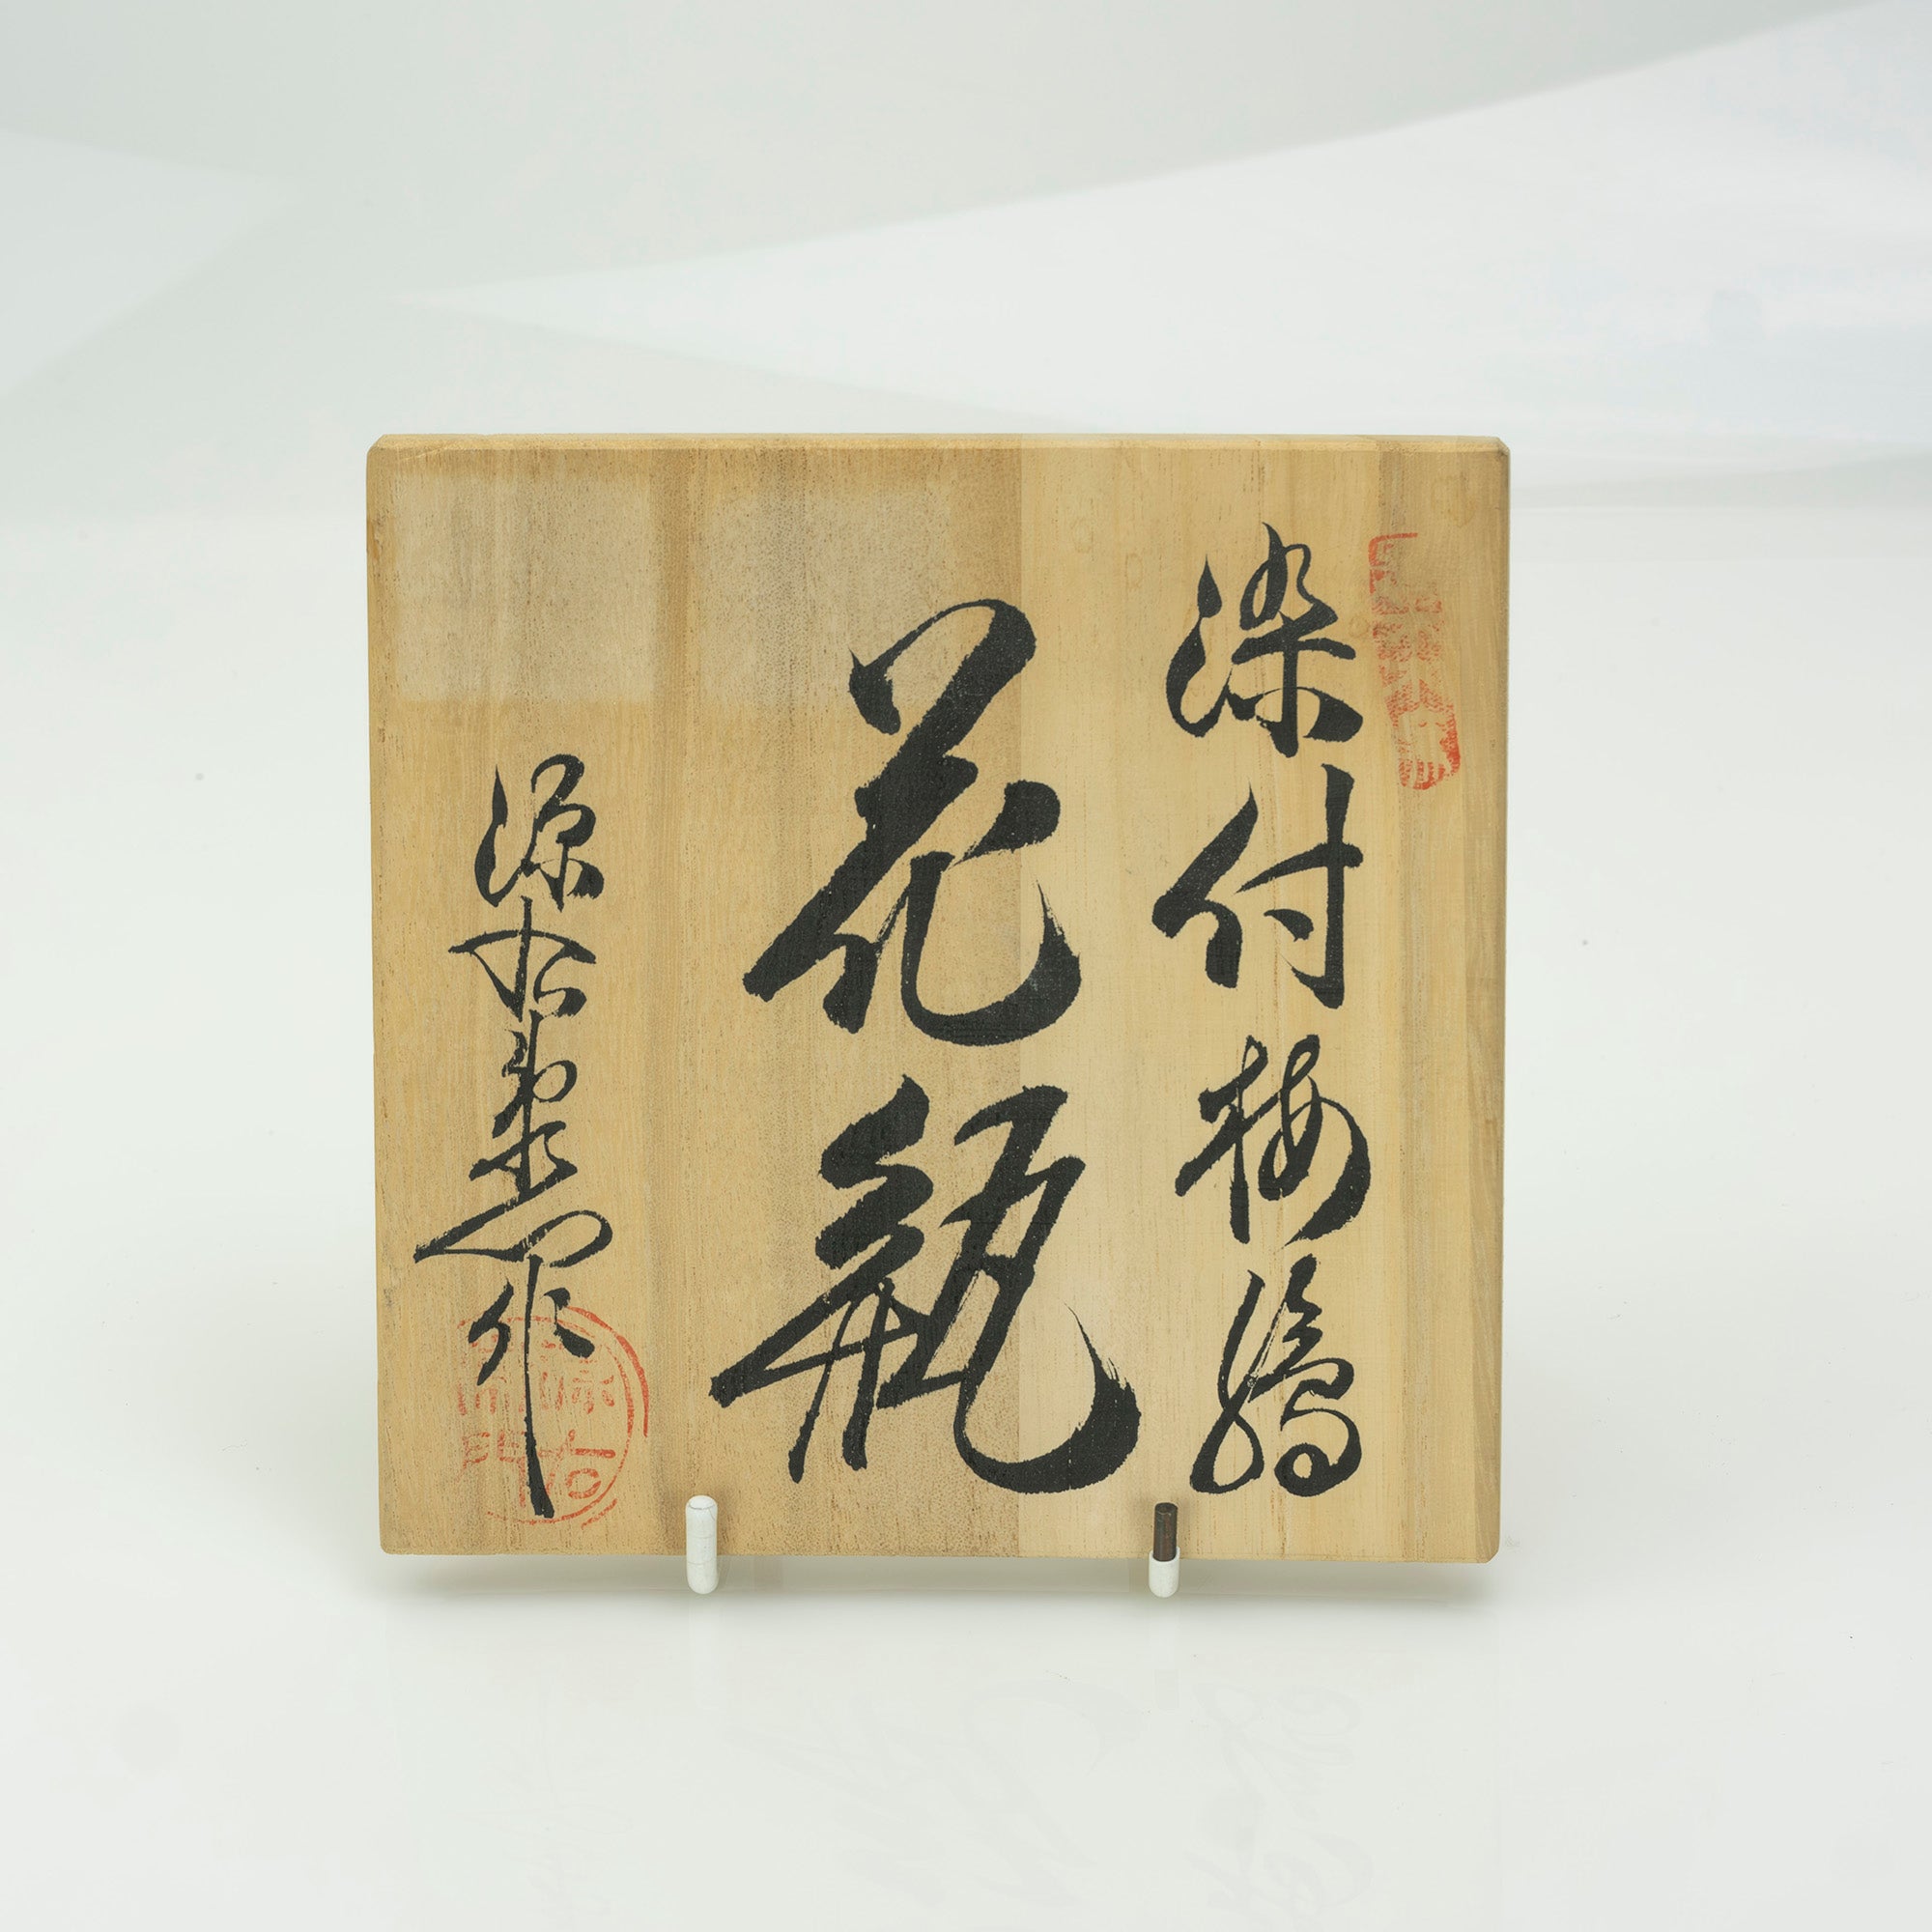 染付梅絵
花瓶
源右衛門作